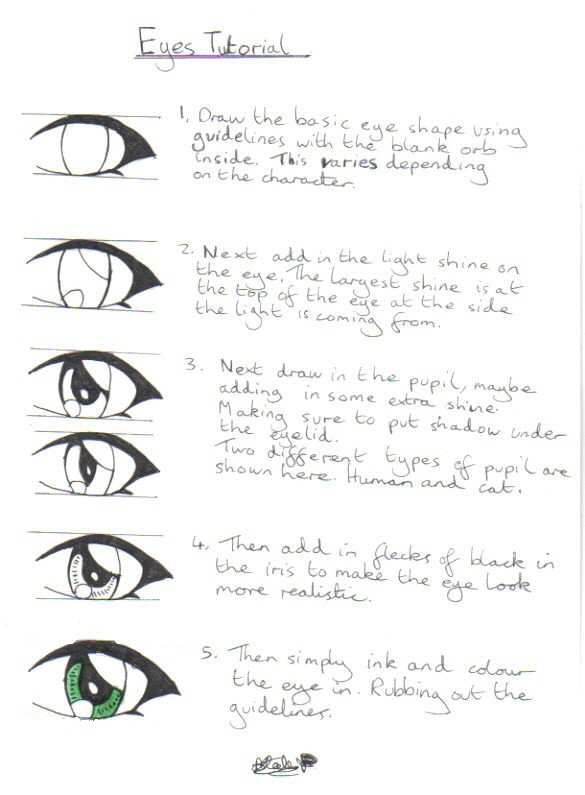 Eyes Tutorial
1. Draw the basic eye shape using
guidelines with the blank orb
inside. This varies depending
on the character.
2. Next add in the light shine on
the eye. The largest shine is at
the top of the eye at the side
the light is coming from.
3. Next draw in the pupil, maybe
adding in some extra shine.
Making sure to put shadow under
the eyelid.
Two different types of pupil are
shown here. Human and cat.
4. Then add in flecks of black in
the iris to make the eye look
more realistic.
5. Then simply ink and colour
the eye in. Rubbing out the
guidelines.